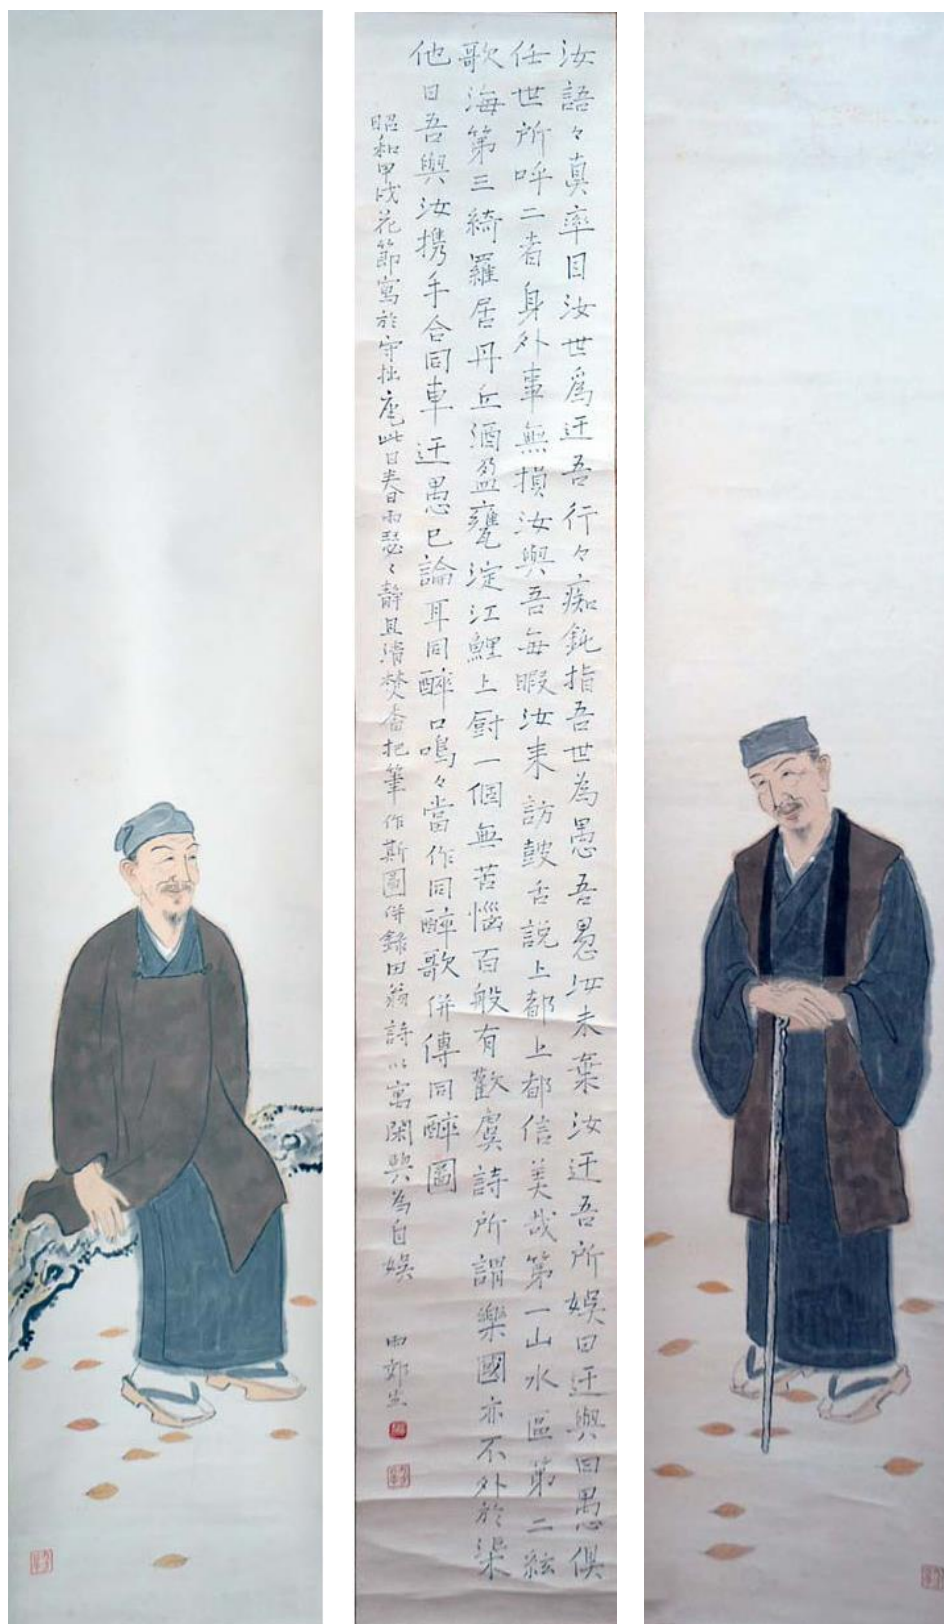 汝語々真率目汝世爲迂吾行々痴鈍指吾世為愚吾愚汝未棄汝迂吾所娯曰迂與曰愚俱
任世所呼二者身外事無損汝與吾毎暇汝来訪鼓舌説上都上都信美哉第一山水區第二絃
歌海第三綺羅居丹丘酒盈甕淀江鯉上厨一個無苦惱百般有歡虞詩所謂樂國亦不外於渠
他日吾與汝携手合同車迂愚已論耳同醉口嗚々當作同醉歌併傳同醉圖
昭和甲戌花節寫於守拙庵此日春雨瑟々静且清焚香把筆作斯圖併録田翁詩以寓閑興為自娯 雨郊生